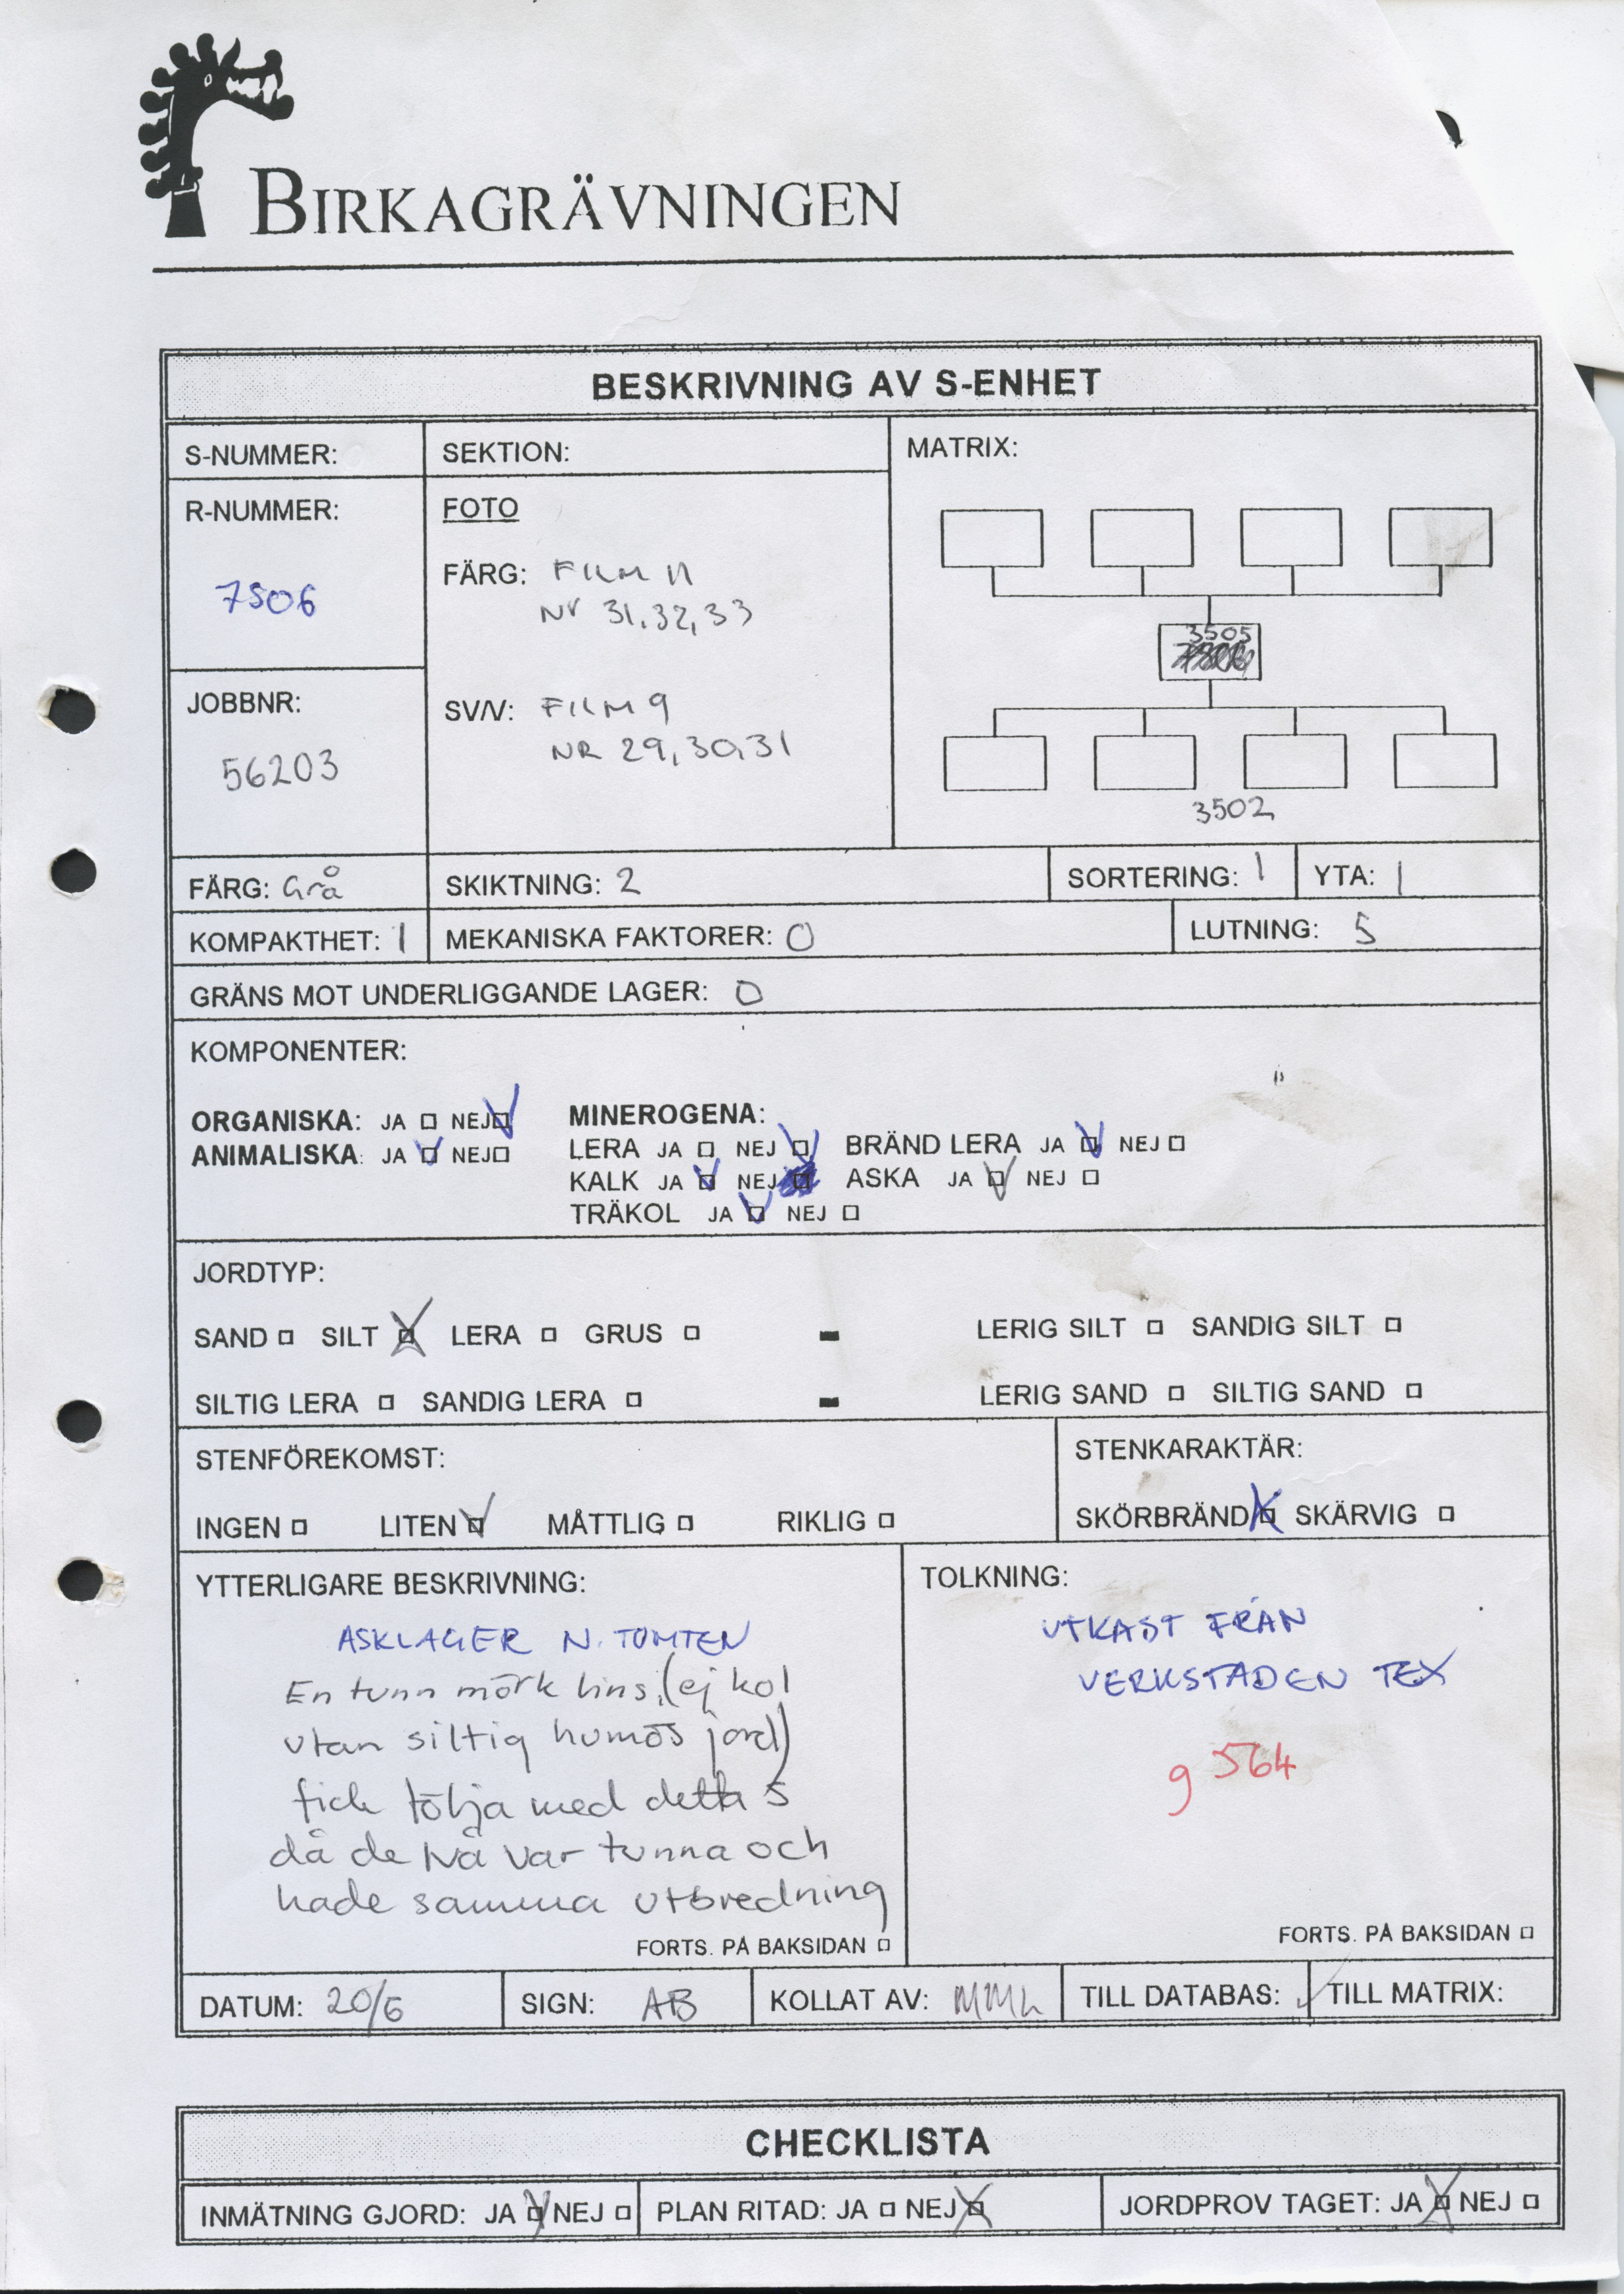 BIRKAGRÄVNINGEN
BESKRIVNING AV S-ENHET
S-NUMMER:
SEKTION:
MATRIX:
R-NUMMER:
7506
FOTO
FÄRG: FILM 11
Nr 31,32,33
SV/V: FILM 9
NR 29,30,31
JOBBNR:
56203
3505
3502
FÄRG: Grå
SKIKTNING: 2
SORTERING: 1
YTA: 1
KOMPAKTHET: 1
MEKANISKA FAKTORER: 0
LUTNING: 5
GRÄNS MOT UNDERLIGGANDE LAGER: 0
KOMPONENTER:
ORGANISKA: JA NEJ
ANIMALISKA: JA NEJ
MINEROGENA:
LERA JA NEJ BRÄND LERA JA NEJ
KALK JA NEJ ASKA JA NEJ
TRÄKOL JA NEJ
JORDTYP:
SAND SILT LERA GRUS - LERIG SILT SANDIG SILT
SILTIG LERA SANDIG LERA - LERIG SAND SILTIG SAND
STENFÖREKOMST:
INGEN LITEN MÅTTLIG RIKLIG
STENKARAKTÄR:
SKÖRBRÄND SKÄRVIG
YTTERLIGARE BESKRIVNING:
ASKLAGER N. TOMTEN
En tunn mörk lins, (ej kol
utan siltig humös jord)
fick följa med detta S
då de två var tunna och
hade samma utbredning
FORTS. PÅ BAKSIDAN
TOLKNING:
UTKAST FRÅN
VERKSTADEN TEX
g 564
FORTS. PÅ BAKSIDAN
DATUM: 20/6
SIGN: AB
KOLLAT AV:
TILL DATABAS:
TILL MATRIX:
CHECKLISTA
INMÄTNING GJORD: JA NEJ
PLAN RITAD: JA NEJ
JORDPROV TAGET: JA NEJ